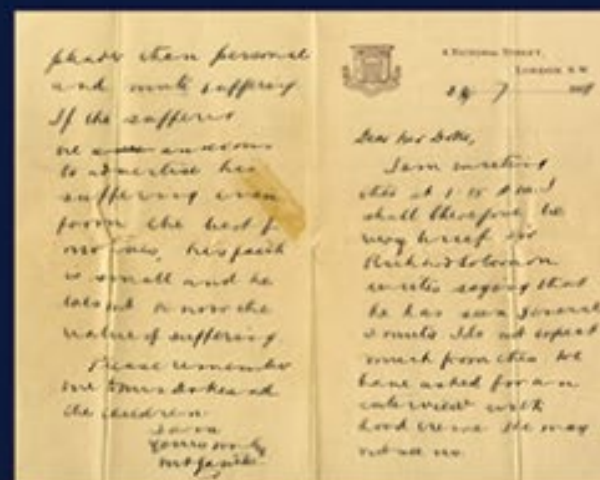 phase than personal
and mute suffering
If the sufferer
were anxious
to advertise his
suffering even
from the best of
motives, his faith
is small and he
does not know the
value of suffering.
Please remember
me to Mrs Doke and
the children
I am
Yours sincerely
MKGandhi
4 Victoria Street,
London, S.W.
7
Dear Mr Doke,
I am writing
this at 1-15 a.m. I
shall therefore be
very brief. Sir
Richard Solomon
writes saying that
he has seen General
Smuts I do not expect
much from this We
have asked for an
interview with
Lord Crewe He may
not see us.